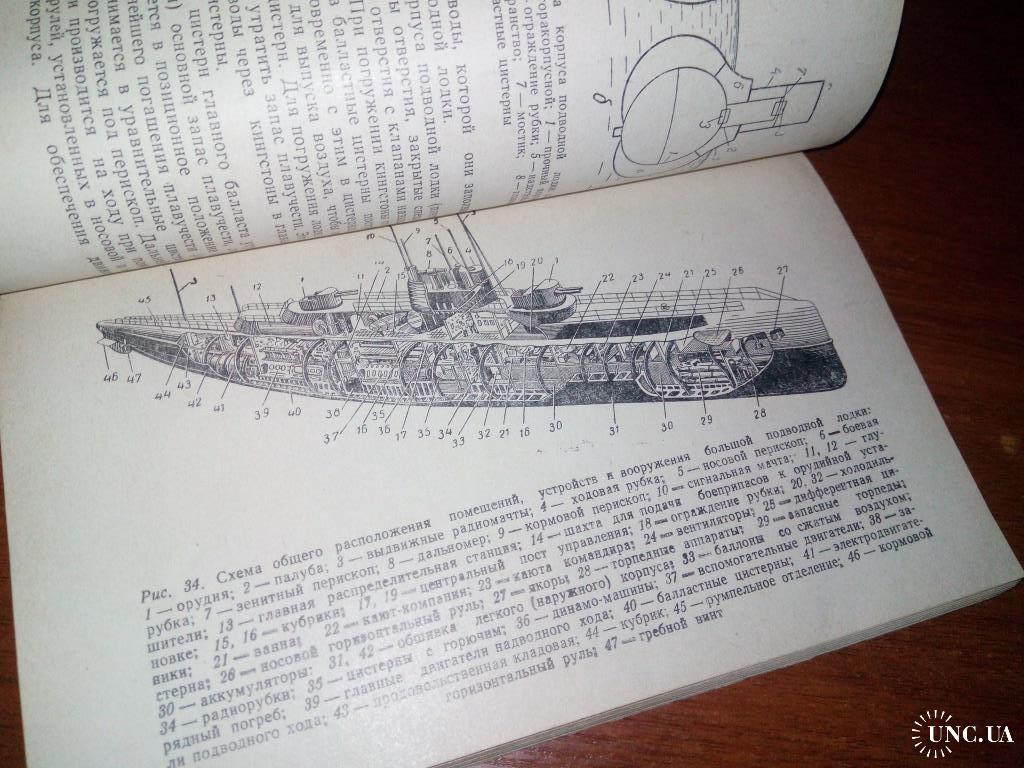 а корпуса подводной лодки
торакорпусной; 1 — прочный
ограждение рубки; 5 — надст
ранство; 7 — мостик; 8 —
ластные цистерны
воды, которой они запо
одной лодки.
рпуса подводной лодки
ы отверстия, закрытые
отверстия с клапанами
При погружении кингстоны
балластные цистерны
овременно с этим в цистерн
для выпуска воздуха, чтобы
цистерн. Для погружения
утратить запас плавучести.
воды через кингстоны в
истерны.
цистерн главного балласта
основной запас плавучести,
ется в позиционное положени
нейшего погашения плавучести
нимается в уравнительные
огружается под перископ.
и производится на ходу при
рулей, установленных в носовой и
корпуса. Для обеспечения
б
45 13 12 11 14 2 15 10 9 8 7 6 5 4 3 18 19 20 1 22 23 24 21 25 26 27
46 47 44 43 42 41 39 40 38 37 16 35 36 17 35 34 33 32 21 16 30 31 30 29 28
Рис. 34. Схема общего расположения помещений, устройств и вооружения большой подводной лодки:
1 — орудия; 2 — палуба; 3 — выдвижные радиомачты; 4 — ходовая рубка; 5 — носовой перископ; 6 — боевая
рубка; 7 — зенитный перископ; 8 — дальномер; 9 — кормовой перископ; 10 — сигнальная мачта; 11, 12 — глу-
шители; 13 — главная распределительная станция; 14 — шахта для подачи боеприпасов к орудийной уста-
новке; 15, 16 — кубрики; 17, 19 — центральный пост управления; 18 — ограждение рубки; 20, 32 — холодиль-
ники; 21 — ванна; 22 — кают-компания; 23 — каюта командира; 24 — вентиляторы; 25 — дифферентная ци-
стерна; 26 — носовой горизонтальный руль; 27 — якорь; 28 — торпедные аппараты; 29 — запасные торпеды;
30 — аккумуляторы; 31, 42 — обшивка легкого (наружного) корпуса; 33 — баллоны со сжатым воздухом;
34 — радиорубки; 35 — цистерны с горючим; 36 — динамо-машины; 37 — вспомогательные двигатели; 38 — за-
рядный погреб; 39 — главные двигатели надводного хода; 40 — балластные цистерны; 41 — электродвигате-
ли подводного хода; 43 — продовольственная кладовая; 44 — кубрик; 45 — румпельное отделение; 46 — кормовой
горизонтальный руль; 47 — гребной винт
UNC.UA